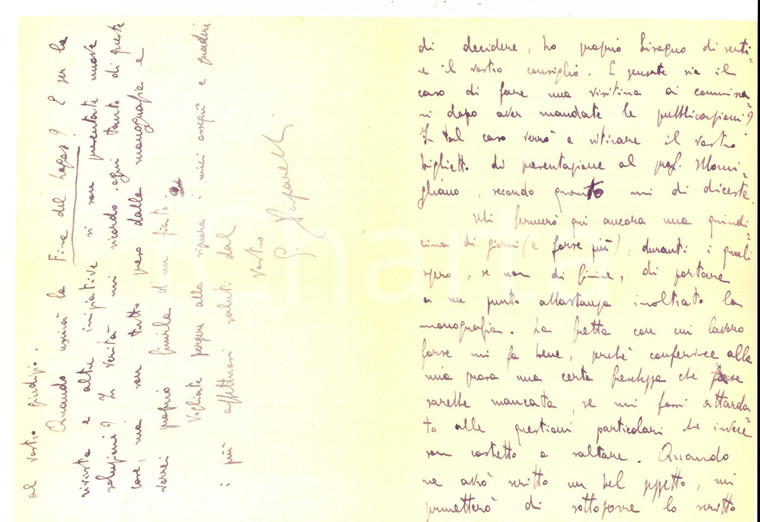 di decidere, ho proprio bisogno di senti=
re il vostro consiglio. E pensate sia il
caso di fare una visitina ai commissa=
ri dopo aver mandate le pubblicazioni?
In tal caso verrò a ritirare il vostro
biglietto di presentazione al prof. Momi=
gliano, secondo quanto mi di diceste.
Mi fermerò qui ancora una quindi=
cina di giorni (e forse più), durante i quali
spero, se non di finire, di portare
a un punto abbastanza inoltrato la
monografia. La fretta con cui lavoro
forse mi fa bene, perchè conferisce alla
mia prosa una certa freschezza che forse
sarebbe mancata, se mi fossi attarda=
to alle questioni particolari che invece
son costretto a saltare. Quando
ne avrò scritto un bel pezzetto, mi
permetterò di sottoporre lo scritto
al vostro giudizio.
Quando uscirà la Fine del logos? E per la
rivista e altre iniziative si son presentate nuove
soluzioni? In verità mi ricordo ogni tanto di queste
cose, ma son tutto preso dalla monografia e
vorrei proprio finirla d'un fiato.
Vogliate porgere alla signora i miei ossequi e gradire
i più affettuosi saluti dal
vostro